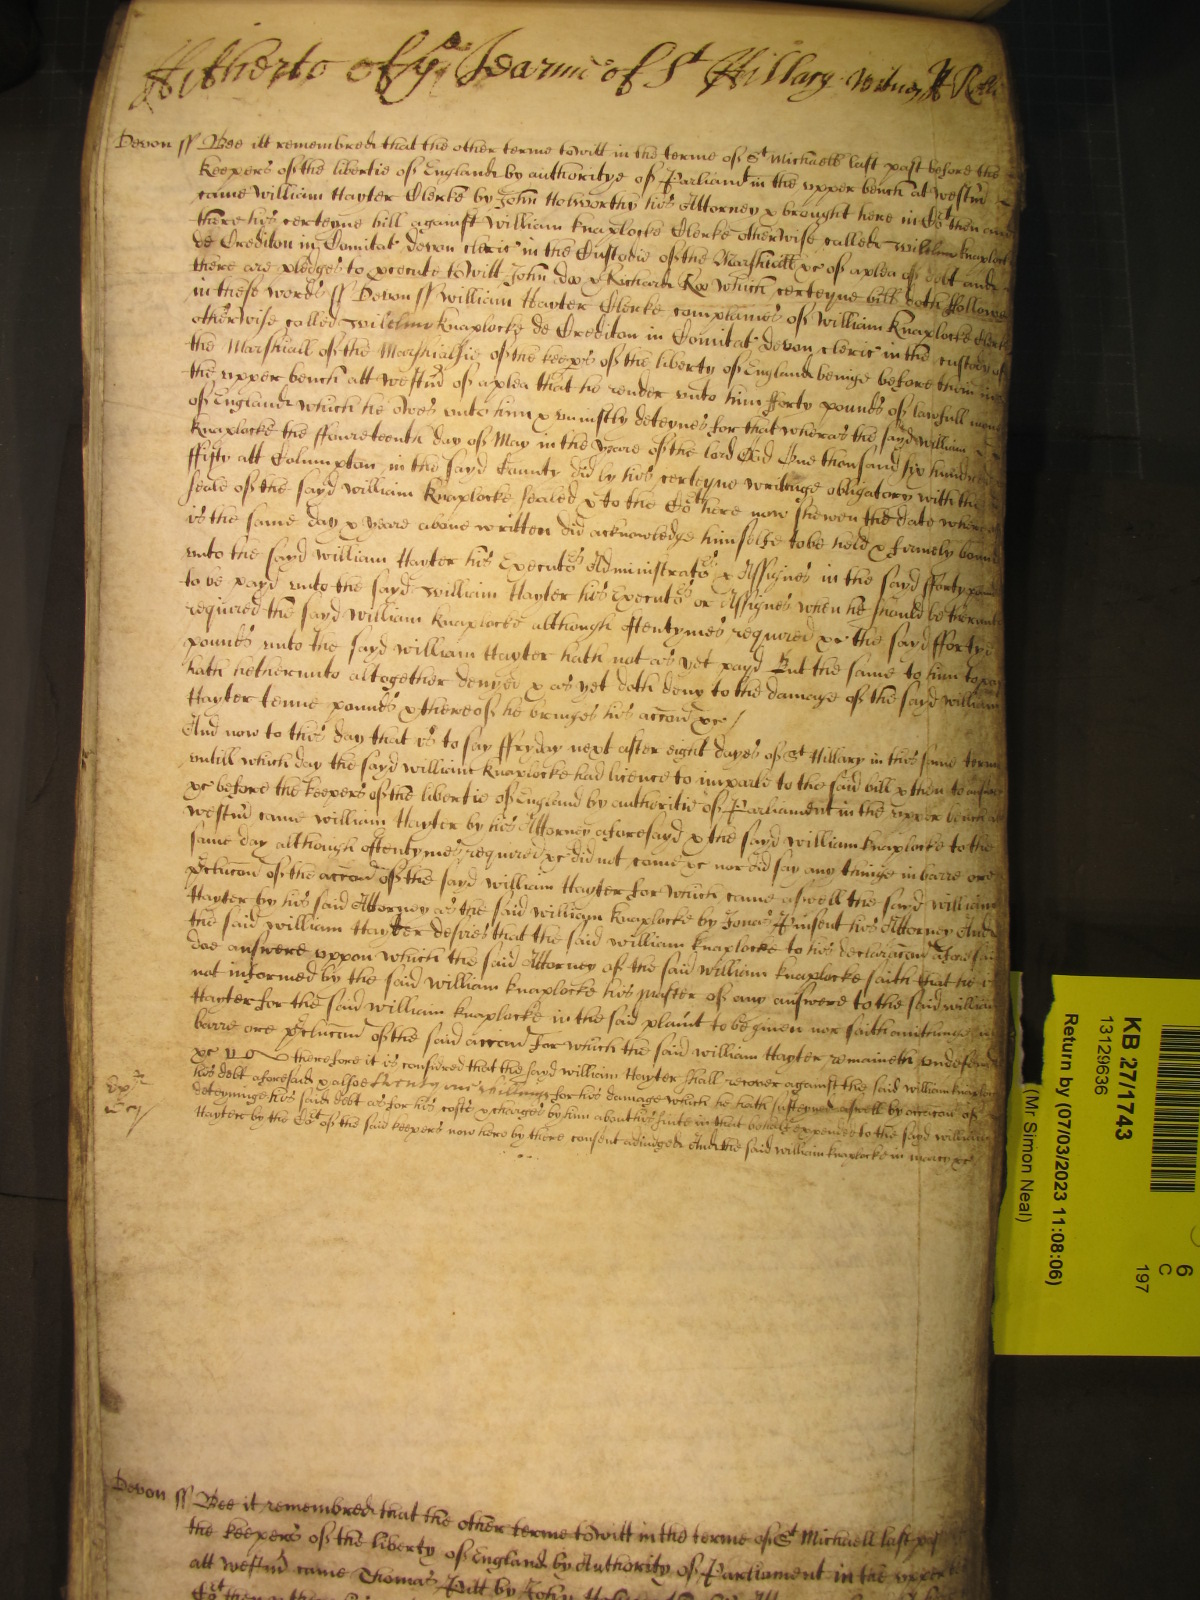 Hitherto of ye Tearme of St Hillary Witnes H Rolle
Devon ss Bee itt remembred that the other terme to witt in the terme of St Michaell last past before the
Keepers of the libertie of England by authoritye of Parliamt in the upper bench at Westmr
came William Hayter Clerke by John Holworthy his Attorney & brought here in Cort then and
there his certeyne bill against William Knaplocke Clerke otherwise called Wilelmu Knaplock
de Crediton in Comitat devon cleric in the Custodie of the Marshall &c of a plea of debt and
there are pledges to p̲secute to witt John Doo & Richard Roo which certeyne bill doth followe
in these words ss Devon ss William Hayter Clerke complaines of William Knaplocke Clerk
otherwise called Wilelmu Knaplocke de Crediton in Comitat devon cleric in the custody of
the Marshiall of the Marshialsie of the keeps of the liberty of England beinge before them in
the upper bench att Westmr of a plea that he render unto him fforty pounds of lawfull mony
of England which he owes unto him & uniustly deteynes for that wheras the sayd William
Knaplocke the ffoureteenth day of May in the yeare of the lord God One thousand six hundred
ffifty att Columpton in the sayd County did by his certeyne writinge obligatory with the
seale of the sayd William Knaplocke sealed & to the Cort here now shewen the date wherof
is the same day & yeare above written did acknowledge himselfe to be held & firmely bound
unto the sayd William Hayter his Executors Administrators & Assignes in the sayd fforty pounds
to be payd unto the sayd William Hayter his Executors or Assignes when he should be therunto
required the sayd William Knaplocke although oftentymes required &c the sayd fforty
pounds unto the sayd William Hayter hath not as yet payd But the same to him to pay
hath hetherunto altogether denyed & as yet doth deny to the damage of the sayd William
Hayter tenne pounds & thereof he bringes his accon &c /
And now to this day that is to say ffryday next after eight dayes of St Hillary in this same terme
untill which day the sayd William Knaplocke had licence to imparle to the said bill & then to answer
&c before the keepers of the libertie of England by authoritie of Parliament in the upper bench att
Westmr came William Hayter by his Attorney aforesayd & the sayd William Knaplocke to the
same day although oftentymes required &c did not come &c nor did say any thinge in barre ore
p̲clucon of the accon of the sayd William Hayter for which came aswell the sayd William
Hayter by his said Attorney as the said William Knaplocke by Jonas Pinsent his Attorney And
the said William Hayter desires that the said William Knaplocke to his declaracon aforesaid
doe answere uppon which the said Attorney of the said William Knaplocke saith that he is
not informed by the said William Knaplocke his Master of any answere to the said William
Hayter for the said William Knaplocke in the said plaint to be given nor saith anithinge in
barre ore p̲clucon of the said accon for which the said William Hayter remaineth undefended
&c therefore it is considered that the sayd William Hayter shall recover against the said William Knaplocke
his debt aforesaid & alsoe shillings for his damage which he hath susteyned aswell by occacon of
deteyninge his said debt as for his costs & charges by him about his suite in that behalfe expended to the sayd William
Hayter by the Cort of the said keepers now here by there consent adiudged And the said William Knaplocke in mercy &c
Devon ss Bee it remembred that the other terme to witt in the terme of St Michaell last past
the keepers of the liberty of England by Authority of Parliament in the upper
att Westmr came Thomas Pitt by John
KB 27/1743
13129636
Return by (07/03/2023 11:08:06)
(Mr Simon Neal)
6
C
197